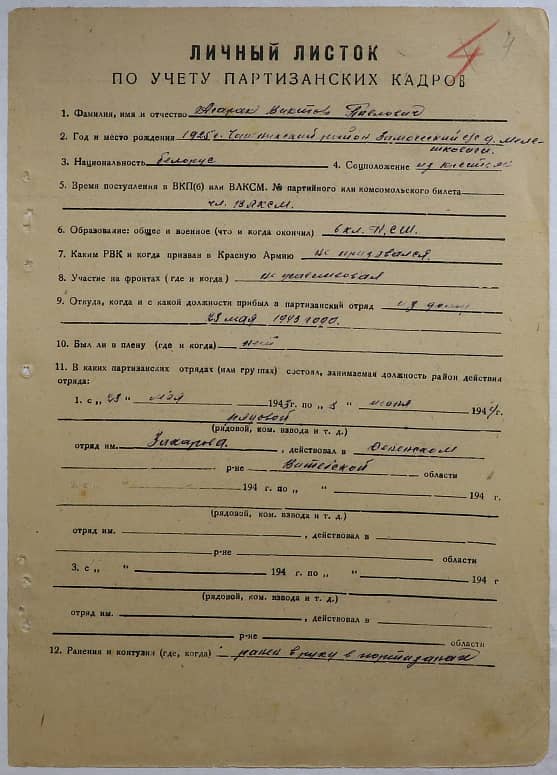 4 4
ЛИЧНЫЙ ЛИСТОК
ПО УЧЕТУ ПАРТИЗАНСКИХ КАДРОВ
1. Фамилия, имя и отчество Виктор Павлович
2. Год и место рождения 1925 г. Чашникский район с/с д.
3. Национальность белорус 4. Соцположение из крестьян
5. Время поступления в ВКП(б) или ВЛКСМ. № партийного или комсомольского билета
чл. ВЛКСМ.
6. Образование: общее и военное (что и когда окончил) 6 кл. Н.С.Ш.
7. Каким РВК и когда призван в Красную Армию не призвался.
8. Участие на фронтах (где и когда) не участвовал
9. Откуда, когда и с какой должности прибыл в партизанский отряд из дому
23 мая 1943 года.
10. Был ли в плену (где и когда) нет
11. В каких партизанских отрядах (или группах) состоял, занимаемая должность район действия
отряда:
1. с „ 23 “ мая 1943 г. по „ “ июня 1944 г.
рядовой
(рядовой, ком. взвода и т. д.)
отряд им. Захарова. , действовал в
р-не Витебской области
194 г. по „ “ 194 г.
(рядовой, ком. взвода и т. д.)
отряд им. , действовал в
р-не области
3. с „ “ 194 г. по „ “ 194 г
(рядовой, ком. взвода и т. д.)
отряд им. , действовал в
р-не области
12. Ранения и контузия (где, когда) ранен в руку в партизанах